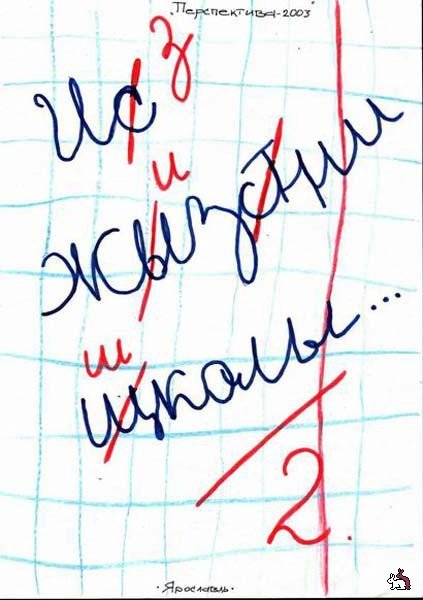 "Перспектива-2003"
з
Ис
и
жызтни
ш
щколы...
2.
·Ярославль·